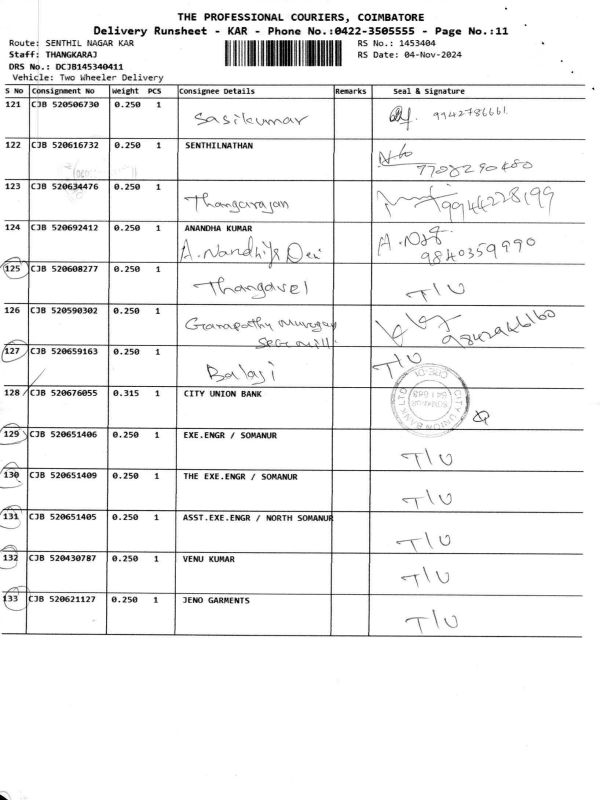 THE PROFESSIONAL COURIERS, COIMBATORE
Delivery Runsheet - KAR - Phone No.:0422-3505555 - Page No.:11
Route: SENTHIL NAGAR KAR RS No.: 1453404
Staff: THANGKARAJ RS Date: 04-Nov-2024
DRS No.: DCJB145340411
Vehicle: Two Wheeler Delivery
S No Consignment No Weight PCS Consignee Details Remarks Seal & Signature
121 CJB 520506730 0.250 1 Sasikumar 9942786661
122 CJB 520616732 0.250 1 SENTHILNATHAN
7708290480
123 CJB 520634476 0.250 1
Thangarajan 9944228199
124 CJB 520692412 0.250 1 ANANDHA KUMAR
A. Nandhi Devi 9840359990
125 CJB 520608277 0.250 1
Thangavel T/U
126 CJB 520590302 0.250 1
Ganapathy Murugan 9842946160
127 CJB 520659163 0.250 1
Balaji T/U
128 CJB 520676055 0.315 1 CITY UNION BANK
CITY UNION BANK LTD
SOMANUR
641 668
129 CJB 520651406 0.250 1 EXE.ENGR / SOMANUR
T/U
130 CJB 520651409 0.250 1 THE EXE.ENGR / SOMANUR
T/U
131 CJB 520651405 0.250 1 ASST.EXE.ENGR / NORTH SOMANUR
T/U
132 CJB 520430787 0.250 1 VENU KUMAR
T/U
133 CJB 520621127 0.250 1 JENO GARMENTS
T/U